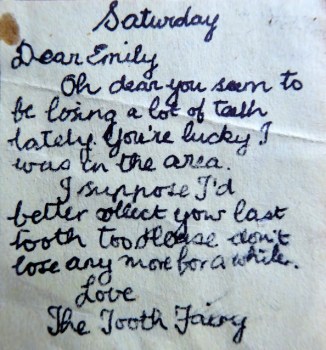 Saturday
Dear Emily
Oh dear you seem to
be losing a lot of teeth
lately. You're lucky I
was in the area.
I suppose I'd
better collect your last
tooth too. Please don't
lose any more for a while.
Love
The Tooth Fairy